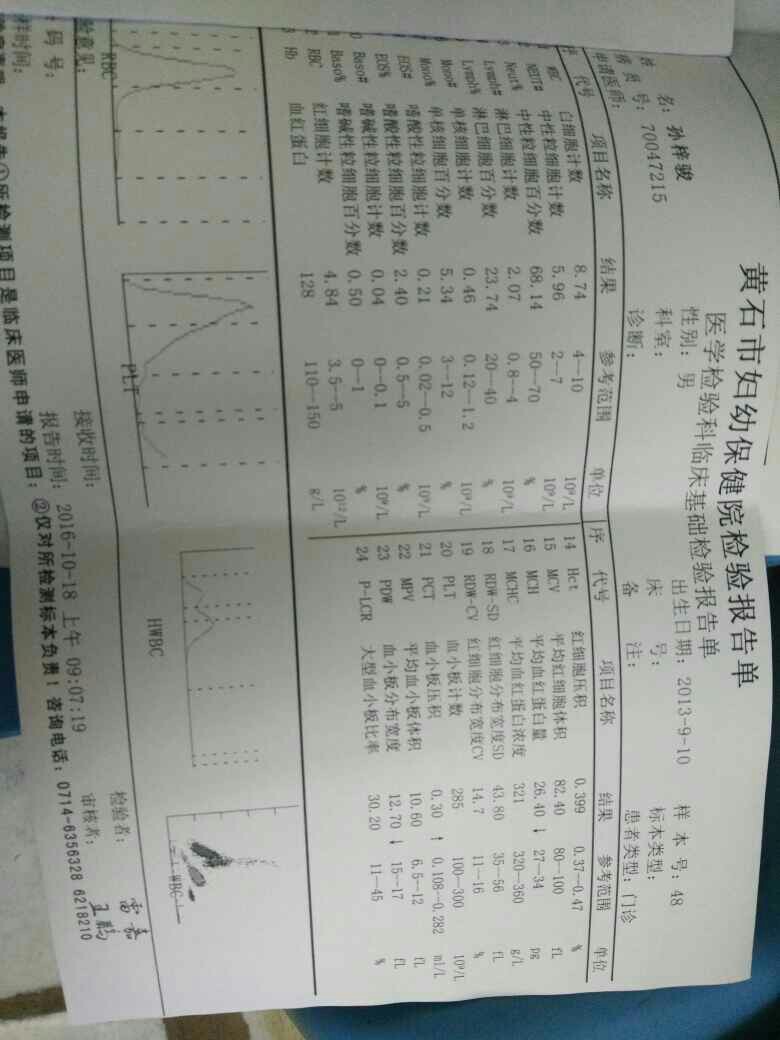 黄石市妇幼保健院检验报告单
医学检验科临床基础检验报告单
名: 孙梓骏 性别: 男 出生日期: 2013-9-10 样 本 号: 48
病 员 号: 70047215 科室: 床 号: 标本类型:
申请医师: 诊断: 备 注: 患者类型: 门诊
序 代号 项目名称 结果 参考范围 单位 序 代号 项目名称 结果 参考范围 单位
WBC 白细胞计数 8.74 4--10 10⁹/L 14 Hct 红细胞压积 0.399 0.37--0.47 %
NEUT# 中性粒细胞计数 5.96 2--7 10⁹/L 15 MCV 平均红细胞体积 82.40 80--100 fL
Neut% 中性粒细胞百分数 68.14 50--70 % 16 MCH 平均血红蛋白量 26.40 ↓ 27--34 pg
Lymph# 淋巴细胞计数 2.07 0.8--4 10⁹/L 17 MCHC 平均血红蛋白浓度 321 320--360 g/L
Lymph% 淋巴细胞百分数 23.74 20--40 % 18 RDW-SD 红细胞分布宽度SD 43.80 35--56 fL
Mono# 单核细胞计数 0.46 0.12--1.2 10⁹/L 19 RDW-CV 红细胞分布宽度CV 14.7 11--16 %
Mono% 单核细胞百分数 5.34 3--12 % 20 PLT 血小板计数 285 100--300 10⁹/L
EOS# 嗜酸性粒细胞计数 0.21 0.02--0.5 10⁹/L 21 PCT 血小板压积 0.30 ↑ 0.108--0.282 ml/L
EOS% 嗜酸性粒细胞百分数 2.40 0.5--5 % 22 MPV 平均血小板体积 10.60 6.5--12 fL
Baso# 嗜碱性粒细胞计数 0.04 0--0.1 10⁹/L 23 PDW 血小板分布宽度 12.70 ↓ 15--17 fL
Baso% 嗜碱性粒细胞百分数 0.50 0--1 % 24 P-LCR 大型血小板比率 30.20 11--45 %
RBC 红细胞计数 4.84 3.5--5 10¹²/L
Hb 血红蛋白 128 110--150 g/L
RBC PLT HWBC WBC
验意见:
码 号: 接收时间: 检验者: 雷磊
样时间: 报告时间: 2016-10-18 上午 09:07:19 审核者: 王鹏
本报告①所检测项目是临床医师申请的项目; ②仅对所检测标本负责! 咨询电话: 0714-6356328 6218210